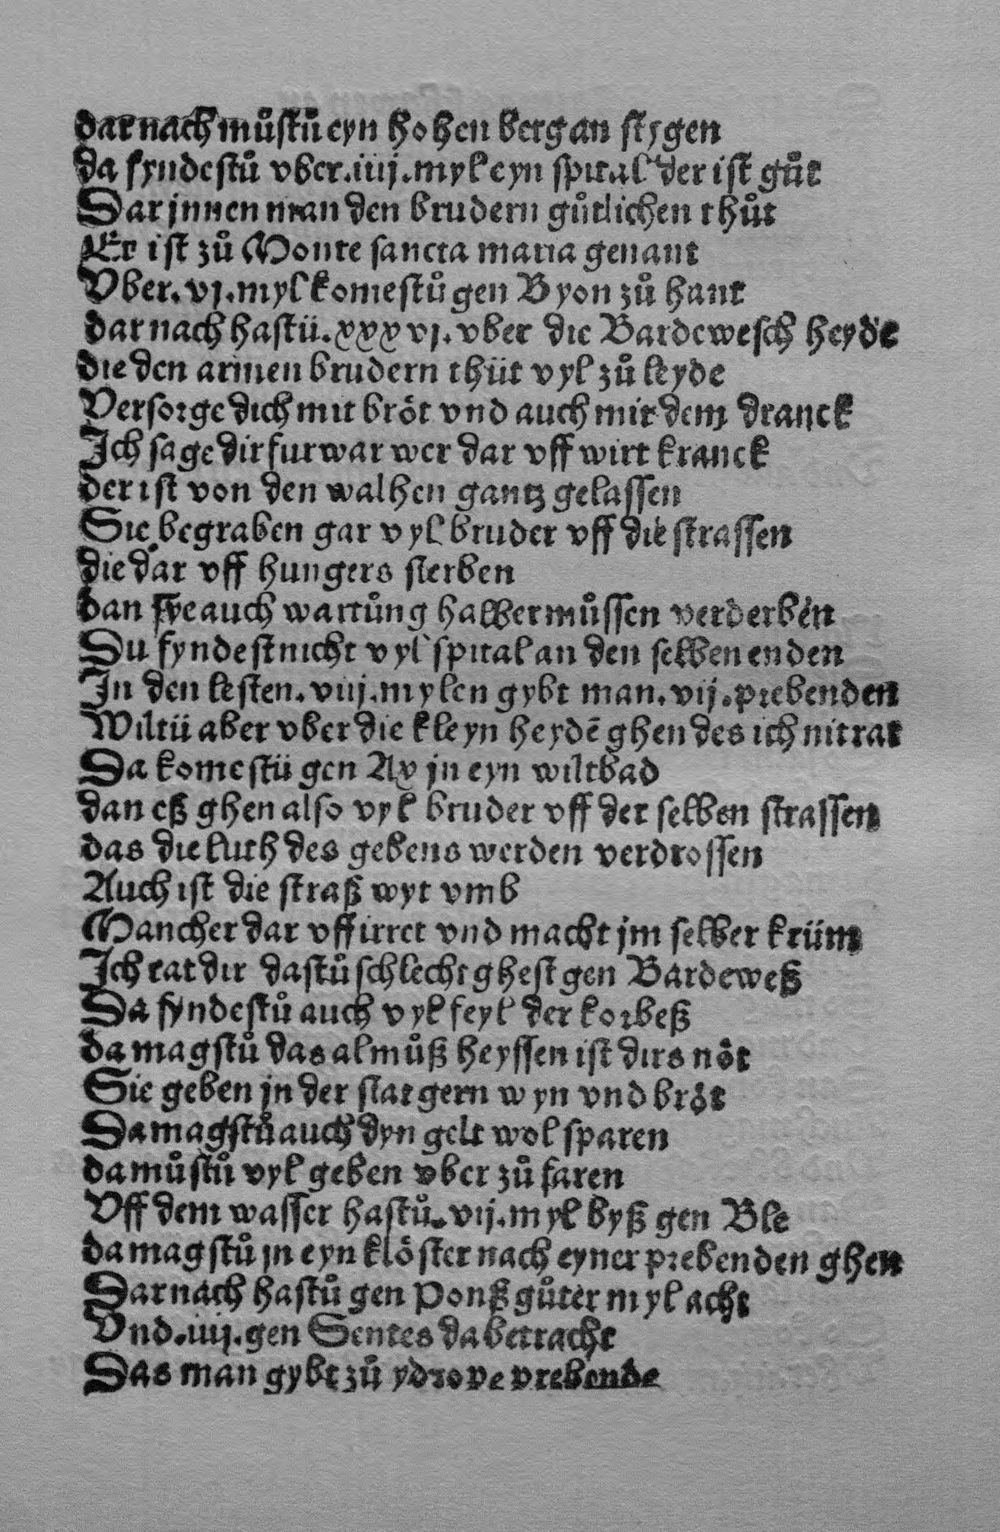 dar nach můstů eyn hohen berg an stygen
da fyndestů vber .iiij. myl eyn spital der ist gůt
Dar jnnen man den brudern gůtlichen thůt
Er ist zů Monte sancta maria genant
Vber .vj. myl komestů gen Byon zů hant
dar nach hastü .xxxvj. vber die Bardewesch heyde
die den armen brudern thüt vyl zů leyde
Versorge dich mit bröt vnd auch mit dem dranck
Ich sage dir furwar wer dar vff wirt kranck
der ist von den walhen gantz gelassen
Sie begraben gar vyl bruder vff die strassen
die dar vff hungers sterben
dan sye auch wartůng halber můssen verderben
Du fyndest nicht vyl spital an den selben enden
In den lesten .viij. mylen gybt man .vij. prebenden
Wiltü aber vber die kleyn heydē ghen des ich nit rat
Da komestü gen Ax jn eyn wiltbad
dan eß ghen also vyl bruder vff der selben strassen
das die luth des gebens werden verdrossen
Auch ist die straß wyt vmb
Mancher dar vff irret vnd macht jm selber krüm
Ich rat dir dastů schlecht ghest gen Bardeweß
Da fyndestů auch vyl feyl der korbeß
da magstů das almůß heyssen ist dirs nöt
Sie geben jn der stat gern wyn vnd bröt
Da magstů auch dyn gelt wol sparen
da můstů vyl geben vber zů faren
Vff dem wasser hastů .vij. myl byß gen Ble
da magstů jn eyn klöster nach eyner prebenden ghen
Dar nach hastů gen Ponß gůter myl acht
Vnd .iiij. gen Sentes da betracht
Das man gybt zů ydrope prebende